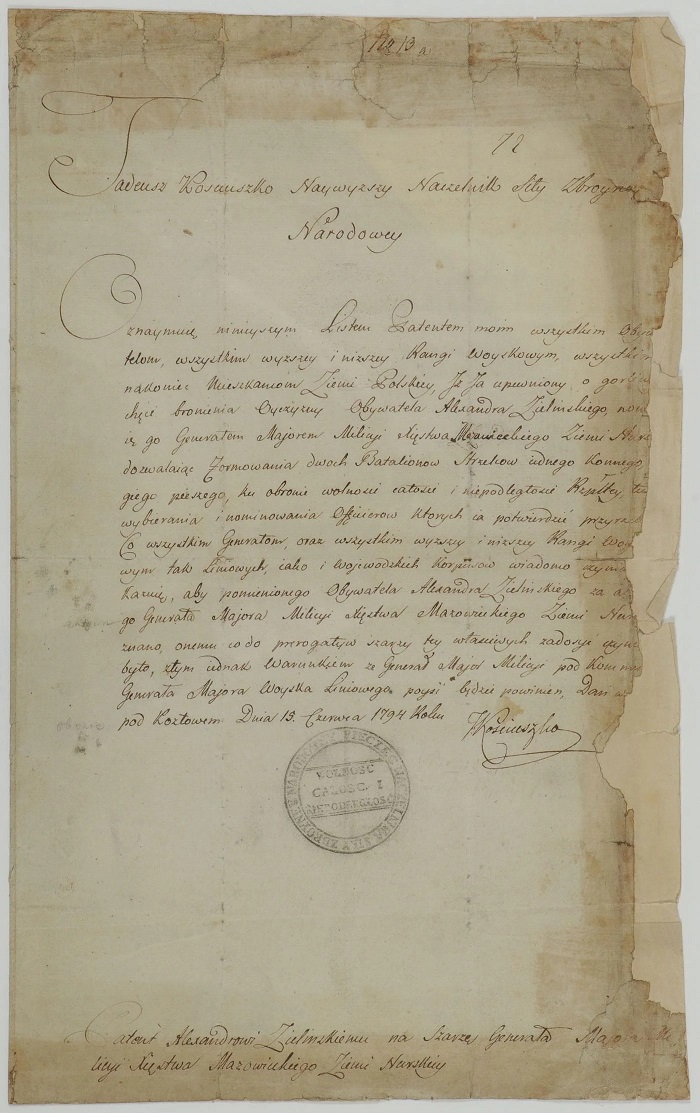 Nro 13 a
72
Tadeusz Kosciuszko Naywyzszy Naczelnik Siły Zbroyney
Narodowey
Oznaymuię ninieyszym Listem Patentem moim wszystkim Obywa
telom, wszystkim wyzszey i nizszey Rangi Woyskowym, wszystkim
nakoniec Mieszkancom Ziemi Polskiey, Jż Ja upewniony o gorliwey
chęci bronienia Oyczyzny Obywatela Alexandra Zielinskiego,
ię go Generałem Majorem Milicyi Xięstwa Mazowieckiego Ziemi Nurs
dozwalaiąc Formowania dwoch Batalionow Strzelcow iednego Konnego,
giego pieszego, ku obronie wolnosci całosci i niepodległosci Rzpltey,
wybierania i nominowania Officierow ktorych ia potwierdzić przyrze
Co wszystkim Generałom, oraz wszystkim wyzszey i nizszey Rangi Woys
wym tak Liniowych, iako i Woiewodzkich Korpusow wiadomo czynią
kazuię, aby pomienionego Obywatela Alexandra Zielinskiego za
go Generała Majora Milicyi Xięstwa Mazowieckiego Ziemi Nurs
znano, onemu co do prerogatyw szarzy tey właściwych zadosyć czyn
było, z tym iednak Warunkiem ze Generał Major Milicyi pod Kommen
Generała Majora Woyska Liniowego poyść będzie powinien, Dan w
pod Kozłowem Dnia 15. Czerwca 1794 Roku
TKościuszko
PIECZĘC NACZELNIKA SIŁY ZBROYNEY NARODOWEY
WOLNOSC
CAŁOSC I
NIEPODLEGŁOSC
Patent Alexandrowi Zielinskiemu na Szarzę Generała Majora Mi
licyi Xięstwa Mazowieckiego Ziemi Nurskiey